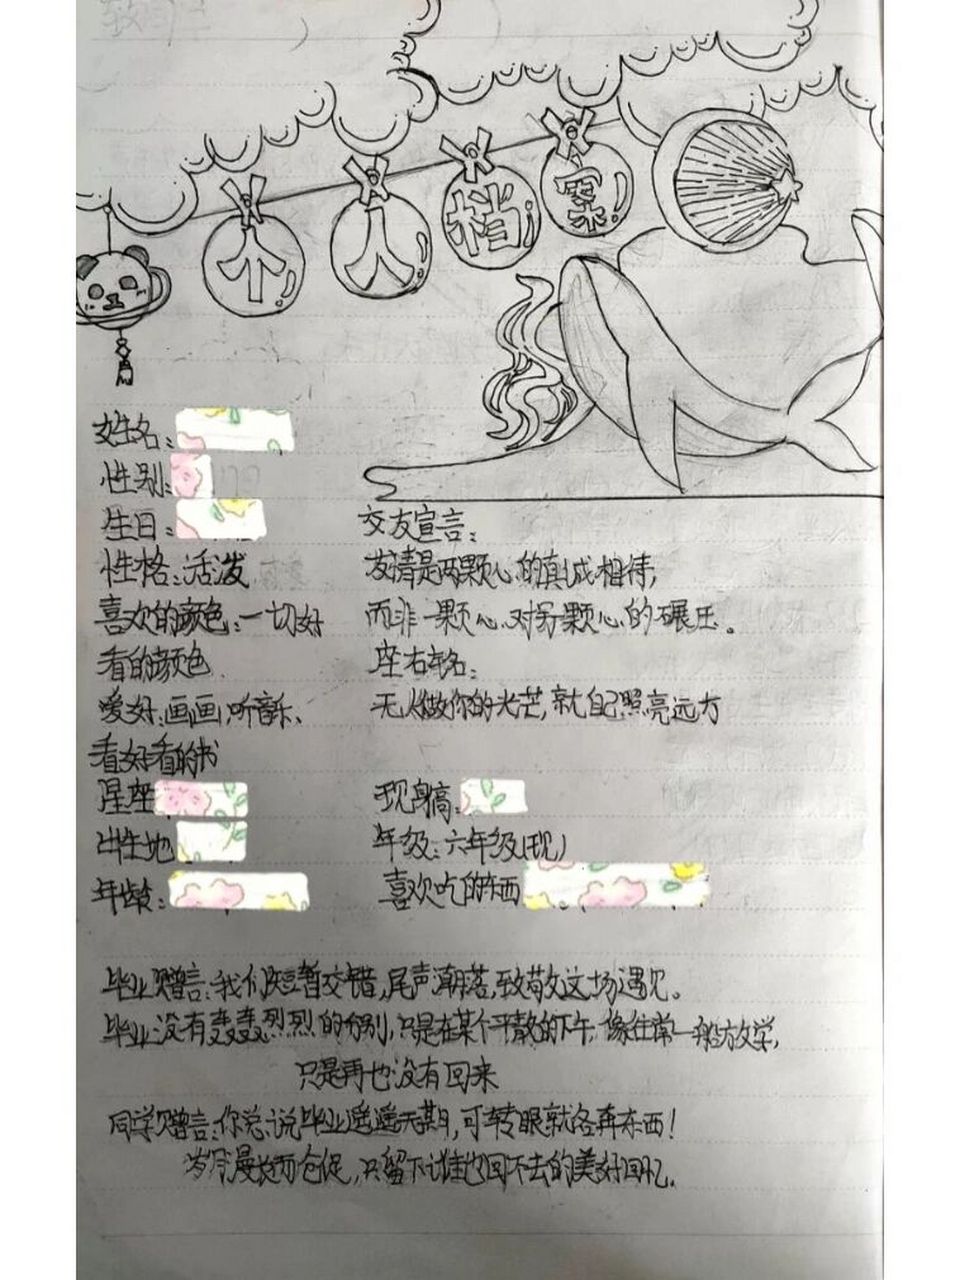 个人档案
姓名：
性别：
生日：
性格：活泼
喜欢的颜色：一切好
看的颜色
爱好：画画，听音乐、
看好看的书
星座
出生地
年龄：
交友宣言：
友情是两颗心的真诚相待，
而非一颗心对另一颗心的碾压。
座右铭：
无人做你的光芒，就自己照亮远方
现身高：
年级：六年级（现）
喜欢吃的东西
毕业赠言：我们短暂交错，尾声潮落，致敬这场遇见。
毕业没有轰轰烈烈的分别，只是在某个平散的下午，像往常一般放学，
只是再也没有回来
同学赠言：你总说毕业遥遥无期，可转眼就各奔东西！
岁月漫长而仓促，只留下谁也回不去的美好回忆。